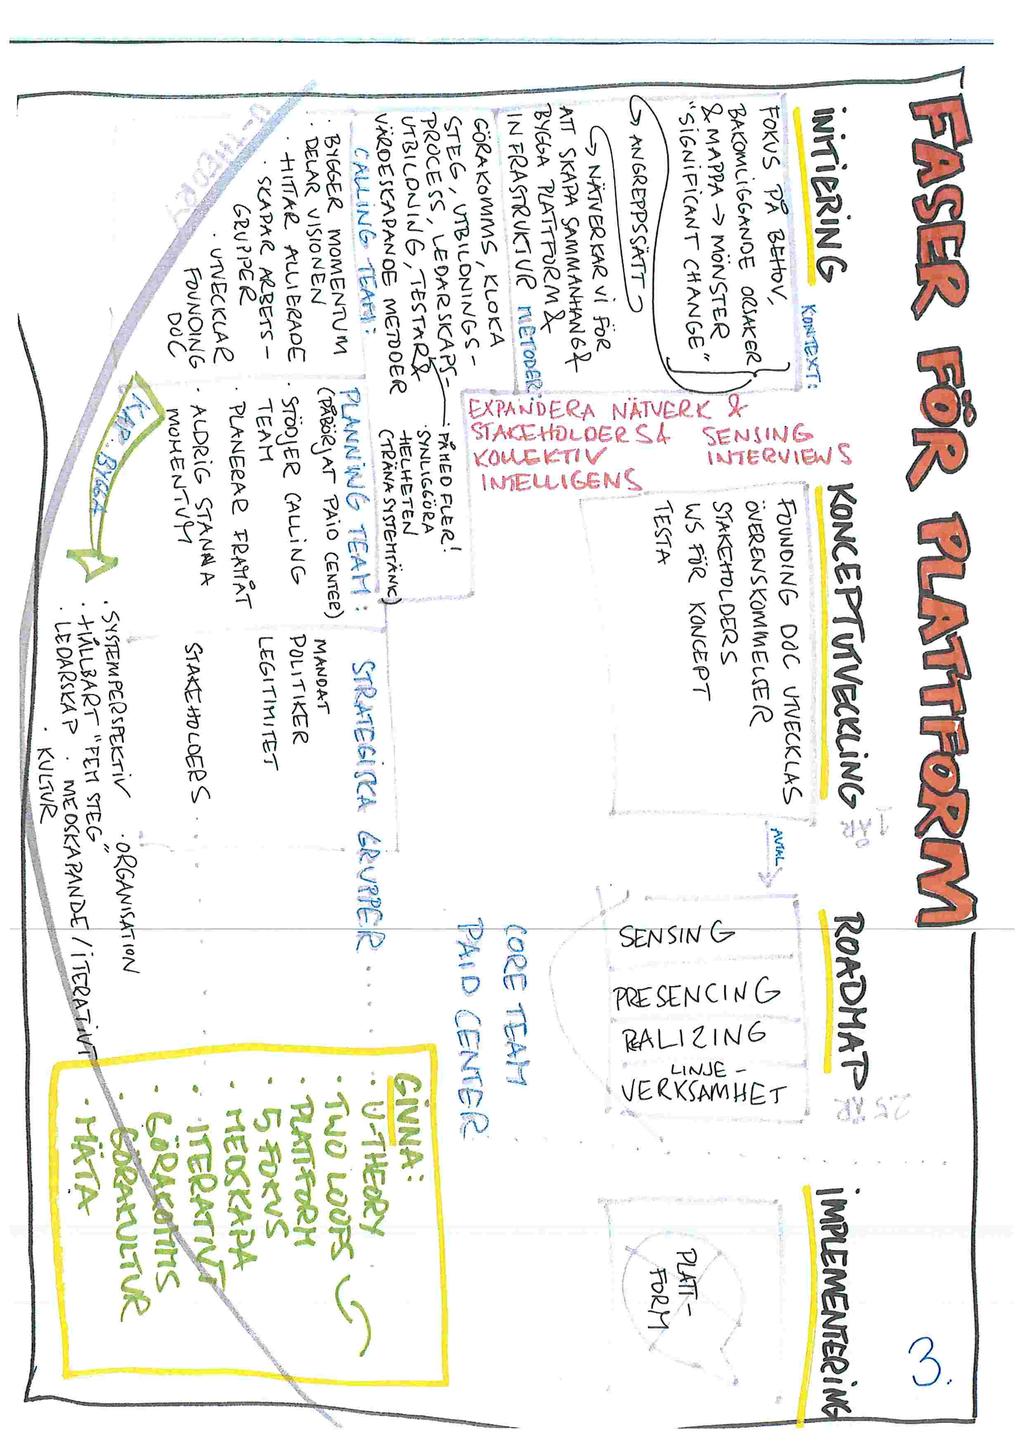 FASER FÖR PLATTFORM
3.
INITIERING
KONTEXT:
FOKUS PÅ BEHOV,
BAKOMLIGGANDE ORSAKER
& MAPPA → MÖNSTER
"SIGNIFICANT CHANGE"
↳ ANGREPPSSÄTT
↳ NÄTVERKAR VI FÖR
ATT SKAPA SAMMANHANG &
BYGGA PLATTFORM &
INFRASTRUKTUR
METODER:
GÖRAKOMMS, KLOKA
STEG, UTBILDNINGS-
PROCESS, LEDARSKAPS-
UTBILDNING, TESTAR &
VÄRDESKAPANDE METODER
· FÅ MED FLER!
· SYNLIGGÖRA
HELHETEN
(TRÄNA SYSTEMTÄNK)
CALLING TEAM:
· BYGGER MOMENTUM
· DELAR VISIONEN
· HITTAR ALLIERADE
· SKAPAR ARBETS-
GRUPPER
· UTVECKLAR
FOUNDING
DOC
U-THEORY
EXPANDERA NÄTVERK &
STAKEHOLDERS &
KOLLEKTIV
INTELLIGENS
SENSING
INTERVIEWS
KONCEPTUTVECKLING
1 ÅR
FOUNDING DOC UTVECKLAS
ÖVERENSKOMMELSER
STAKEHOLDERS
WS FÖR KONCEPT
TESTA
AVTAL
PLANNING TEAM:
(PÅBÖRJAT PAID CENTER)
· STÖDJER CALLING
TEAM
· PLANERAR FRAMÅT
· ALDRIG STANNA
MOMENTUM
KAP. BYGGA
STRATEGISKA GRUPPER
MANDAT
POLITIKER
LEGITIMITET
STAKEHOLDERS
· SYSTEMPERSPEKTIV · ORGANISATION
· HÅLLBART "FEM STEG"
· LEDARSKAP · MEDSKAPANDE / ITERATIVT
· KULTUR
ROADMAP
2.5 ÅR
SENSING
PRESENCING
RALIZING
LINJE-
VERKSAMHET
CORE TEAM
PAID CENTER
IMPLEMENTERING
PLATT-
FORM
GIVNA:
· U-THEORY
· TWO LOOPS
· PLATTFORM
· 5 FOKUS
· MEDSKAPA
· ITERATIVT
· GÖRAKOMMS
· GÖRAKULTUR
· MÄTA